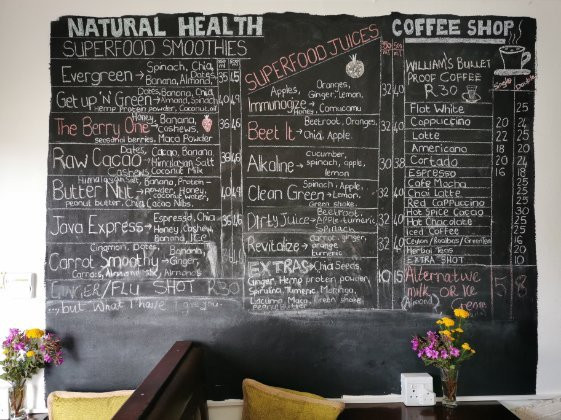 NATURAL HEALTH
SUPERFOOD SMOOTHIES
Evergreen → Spinach, Chia,
Banana, Almond, Dates
35 45
Get up 'N' Green → Dates, Banana, Chia,
Almond, Spinach
Hemp Protein powder, Coconut
40 49
The Berry One → Honey, Banana,
Cashews,
seasonal berries, Maca Powder
36 46
Raw Cacao → Dates, Cacao, Banana,
Himalayan Salt
Cashews, Coconut Milk
Butter Nut → Himalayan Salt, Banana, Protein
powder, Honey,
peanut butter, Cacao Nibs
40 49
Java Express → Espresso, Chia
Honey, Cashew,
Banana, Ice
36 46
Carrot Smoothy → Cinnamon, Dates, Banana,
Ginger,
Carrots, Almonds
GINGER/FLU SHOT R30
but What I have I give you
SUPERFOOD JUICES
Immunogize → Apples, Oranges,
Ginger, Lemon,
Honey
32 40
Beet It → Beetroot, Oranges,
Chia, Apple
32 40
Alkaline → Cucumber,
spinach, apple,
lemon
30 38
Clean Green → Spinach, Apple,
Lemon,
Green shake
32 40
Dirty Juice → Beetroot,
Apple, turmeric
Spinach
32 40
Revitalize → Carrot, ginger,
orange
turmeric
32 40
EXTRAS → Chia Seeds,
Ginger, Hemp protein powder,
Spirulina, Turmeric, Moringa,
Lucuma, Maca, Green shake
peanut butter
10 15
COFFEE SHOP
WILLIAM'S BULLET
PROOF COFFEE
R30
Single Double
Flat White 25
Cappuccino 20 24
Latte 22 25
Americano 18 24
Cortado 20 24
Espresso 16 18
Cafe Mocha 25
Choc Latte 25
Red Cappuccino 25
Hot Spice Cacao 30
Hot Chocolate 25
Iced Coffee 25
Ceylon/Rooibos/Green tea
Herbal Teas 20
EXTRA SHOT 10
Alternative
milk OR Ice
5 8
Almond